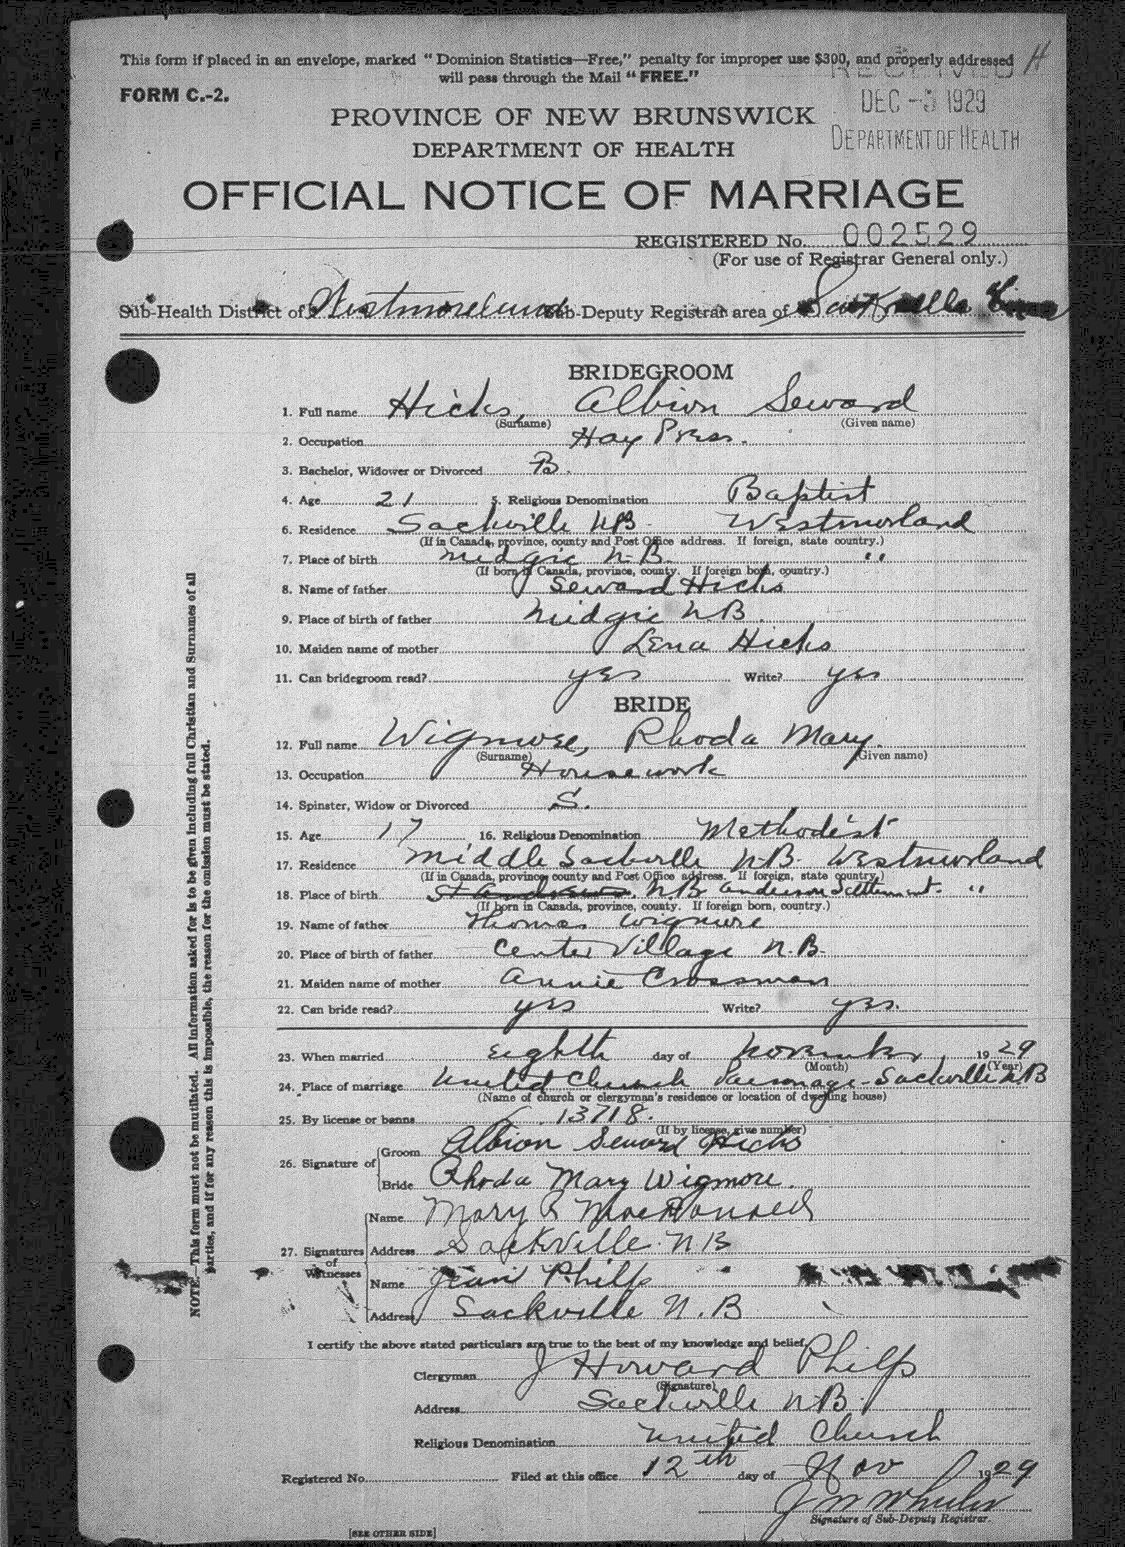 This form if placed in an envelope, marked "Dominion Statistics—Free," penalty for improper use $300, and properly addressed H
will pass through the Mail "FREE."
RECEIVED
FORM C.-2.
DEC -5 1929
PROVINCE OF NEW BRUNSWICK
DEPARTMENT OF HEALTH
DEPARTMENT OF HEALTH
OFFICIAL NOTICE OF MARRIAGE
REGISTERED No. 002529
(For use of Registrar General only.)
Sub-Health District of Westmoreland Sub-Deputy Registrar area of Sackville
BRIDEGROOM
1. Full name Hicks, Albion Seward
(Surname) (Given name)
2. Occupation Hay Press.
3. Bachelor, Widower or Divorced B.
4. Age 21 5. Religious Denomination Baptist
6. Residence Sackville NB- Westmorland
(If in Canada, province, county and Post Office address. If foreign, state country.)
7. Place of birth Midgic N-B. "
(If born in Canada, province, county. If foreign born, country.)
8. Name of father Seward Hicks
9. Place of birth of father Midgic NB.
10. Maiden name of mother Lena Hicks
11. Can bridegroom read? yes Write? yes
BRIDE
12. Full name Wigmore, Rhoda Mary.
(Surname) (Given name)
13. Occupation Housework
14. Spinster, Widow or Divorced S.
15. Age 17 16. Religious Denomination Methodist
17. Residence Middle Sackville N-B- Westmorland
(If in Canada, province, county and Post Office address. If foreign, state country.)
18. Place of birth St Andrews. N.B Anderson Settlement. "
(If born in Canada, province, county. If foreign born, country.)
19. Name of father Thomas Wigmore
20. Place of birth of father Center Village N.B-
21. Maiden name of mother Annie Crossman
22. Can bride read? yes Write? yes.
23. When married Eighth day of November, 1929
(Month) (Year)
24. Place of marriage United Church Parsonage-Sackville NB
(Name of church or clergyman's residence or location of dwelling house)
25. By license or banns L. 13718.
(If by license, give number)
26. Signature of Groom Albion Seward Hicks
Bride Rhoda Mary Wigmore.
27. Signatures of Witnesses
Name Mary R MacDonald
Address Sackville. N B
Name Jean Philp
Address Sackville N.B
I certify the above stated particulars are true to the best of my knowledge and belief.
Clergyman J Howard Philp
(Signature)
Address Sackville N.B.
Religious Denomination United Church
Registered No. Filed at this office 12th day of Nov 1929
J M Wheeler
Signature of Sub-Deputy Registrar.
[SEE OTHER SIDE]
NOTE.—This form must not be mutilated. All information asked for is to be given including full Christian and Surnames of all
parties, and if for any reason this is impossible, the reason for the omission must be stated.